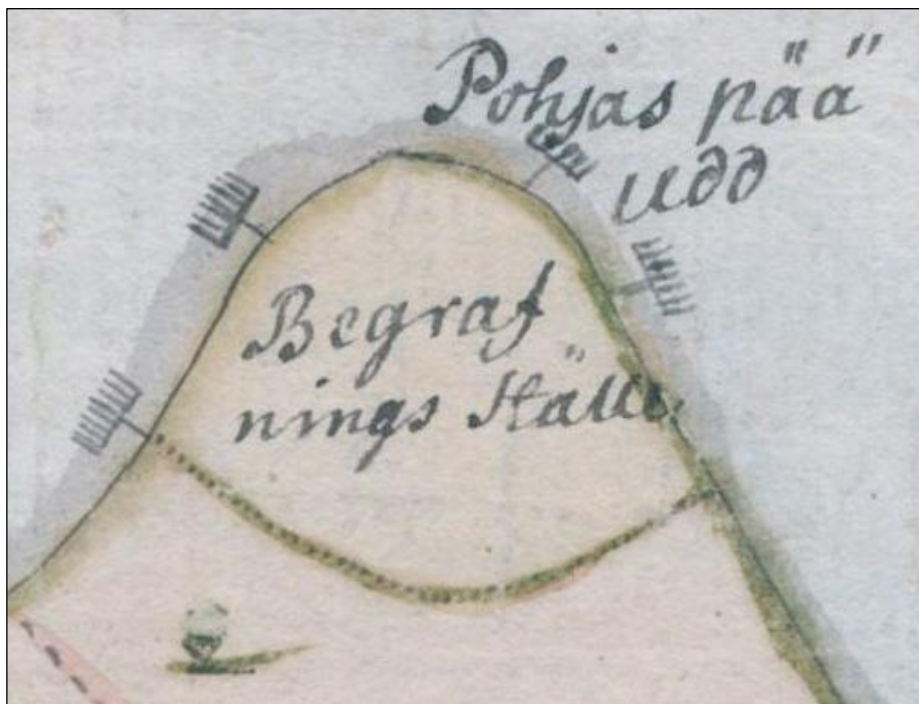 Pohjas pää
Udd
Begraf
nings Ställe